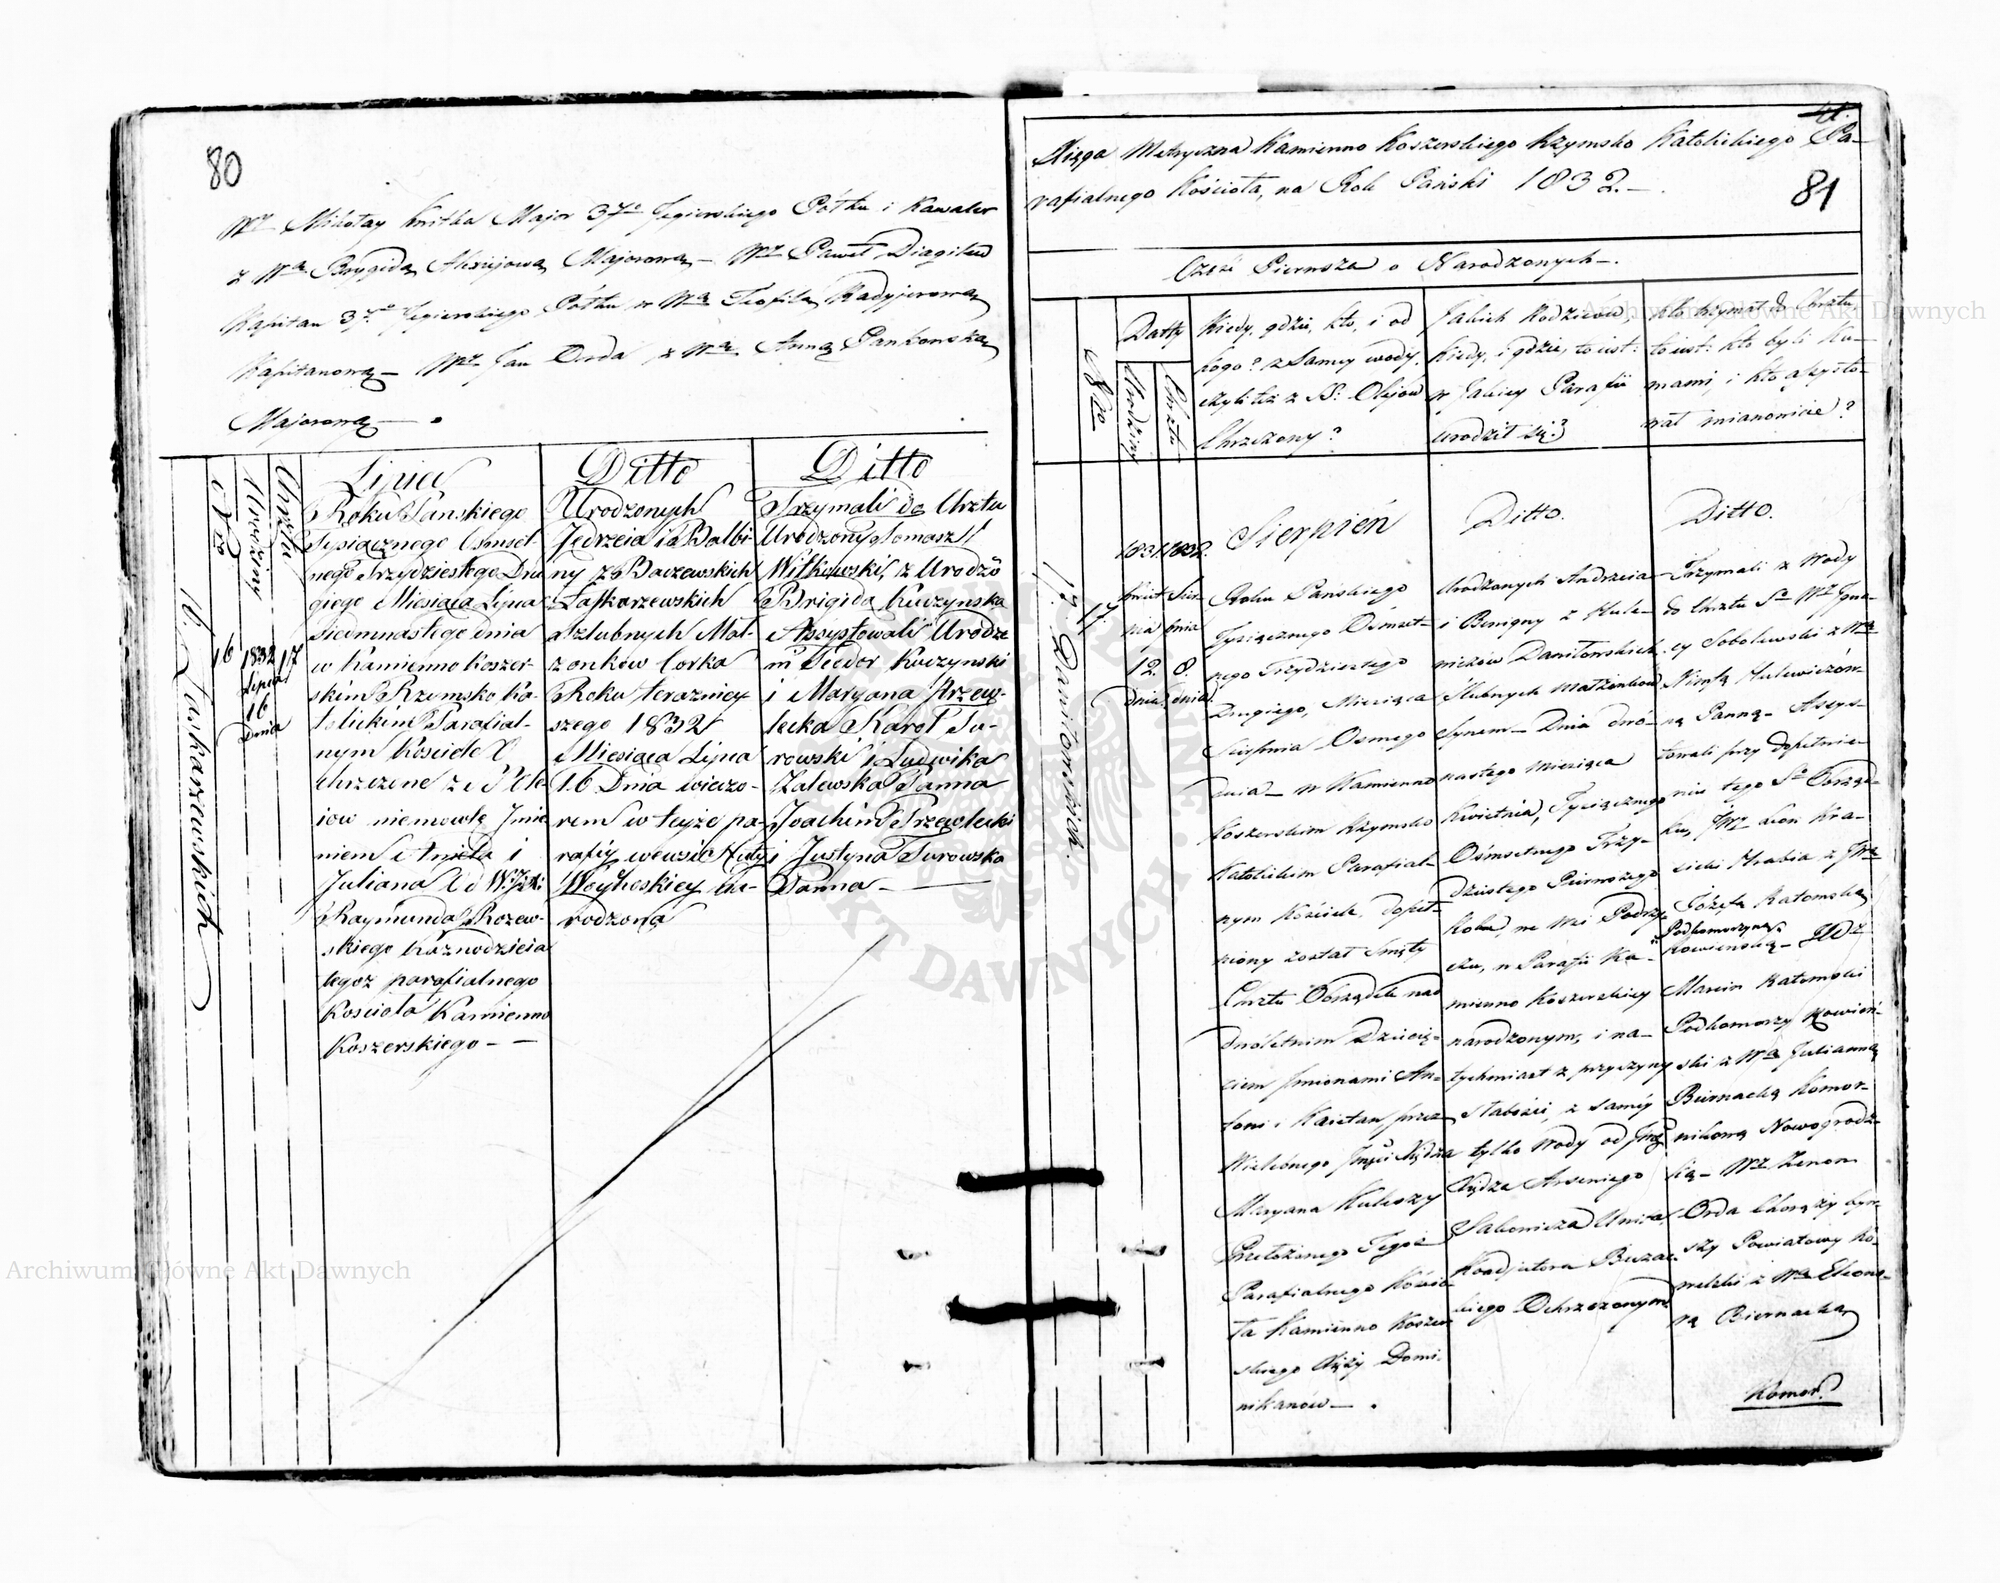 80
Wz Mikołay Kwitka Major 37o Jegierskiego Półku i Kawaler
z Wą Brygidą Majorową – Wz Paweł
Kapitan 37o Jegierskiego Półku z Wą Teofilą
Kapitanową – Wz Jan Orda z Wą Anną Pankowską
Majorową –
Nro
Urodziny
Chrztu
16. Laskarzewskich
16
1832
Lipca
16
Dnia
17
Lipiec
Roku Pańskiego
Tysiącznego Osmset
nego Trzydziestego Dru
giego Miesiąca Lipca
siedmnastego dnia
w Kamienno Koszer-
skim Rzymsko Ka-
tolickim Parafial-
nym Kościele
chrzczone z S Ole
iow niemowlę Jmie
niem Aniela i
Juliana Od WJX:
Raymunda Rozew-
skiego Kaznodzieia
tegoż parafialnego
Kościoła Kamienno
Koszerskiego – –
Ditto
Urodzonych
Jędrzeia i Balbi
ny z Baczewskich
Laskarzewskich
Szlubnych Mał-
żonków Corka
Roku terazniey
szego 1832
Miesiąca Lipca
16 Dnia wieczo-
rem w teyże pa-
rafiy we wsi Huty
Woyheskiey U-
rodzona
Ditto
Trzymali do Chrztu
Urodzony Tomasz
Witkowski, z Urodzo
Brigidą Kuczynską
Assystowali Urodzo
ni Teodor Kuczynski
i Maryana Przew-
łecka Karol Tu-
rowski i Ludwika
Zalewska Panna
Joachim Przewłocki
i Justyna Turowska
Panna –
41.
81
Xięga Metryczna Kamienno Koszerskiego Rzymsko Katolickiego Pa-
rafialnego Kościoła, na Rok Pański 1832. –
Część Pierwsza o Narodzonych –.
Nro
Datty
Urodziny
Chrztu
Kiedy, gdzie, kto, i od
kogo? z Samey wody,
czyli też z SS: Olejów
Chrzczony?
Jakich Rodziców,
kiedy, i gdzie, to iest:
w Jakiey Parafii
urodził się?
Kto trzymał do Chrztu
to iest: kto byli Ku-
mami, i kto assysto-
wał mianowicie?
17. Daniłowskich.
17.
1831
Kwiet
nia
12.
dnia
1832.
Sier
pnia
8.
dnia
Sierpień
Roku Pańskiego
Tysiącznego Ośmset-
nego Trzydziestego
Drugiego, Miesiąca
Sierpnia Osmego
Dnia – w Kamienno
Koszerskim Rzymsko
Katolickim Parafial-
nym Kościele, dopeł-
niony został Święty
Chrztu Obrządek nad
dwóletnim Dziecię-
ciem Jmionami An-
toni i Kaietan przez
Wielebnego Jmci Xiędza
Maryana Kuleszy
Przełożonego Tegoż
Parafialnego Kościo
ła Kamienno Koszer
skiego XXży Domi-
nikanów –.
Ditto.
Urodzonych Andrzeia
i Benigny z Hule-
wiczów Daniłowskich
Slubnych Małżonków
Synem – Dnia dwó-
nastego miesiąca
Kwietnia, Tysiącznego
Ośmsetnego Trzy-
dziestego Pierwszego
Roku, we Wsi
w Parafii Ka-
mienno Koszerskiey
narodzonym, i na-
tychmiast z przyczyny
słabości, z samey
tylko Wody od Jmci
Xiędza Arseniego
Sakowicza Unita
Koadjutora
Ochrzczonym
Ditto.
Trzymali z Wody
do Chrztu So Wz Igna-
cy Sobolewski z Wą
Hulewiczów-
ną Panną – Assys-
towali przy dopełnie-
niu tego So Obrząd-
ku, JWz Leon Kra-
sicki Hrabia z JWą
Józefą Ratomską
Podkomorzyną
Kowieńską – JWz
Marcin Ratomski
Podkomorzy Kowień-
ski z Wą Julianną
Biernacką Komor-
nikową Nowogrodz-
ką – Wz Zenon
Orda Chorąży byw-
szy Powiatowy Ko-
welski z Wą Eleono-
rą Biernacką
Komor.
Archiwum Główne Akt Dawnych
Archiwum Główne Akt Dawnych
AKT DAWNYCH